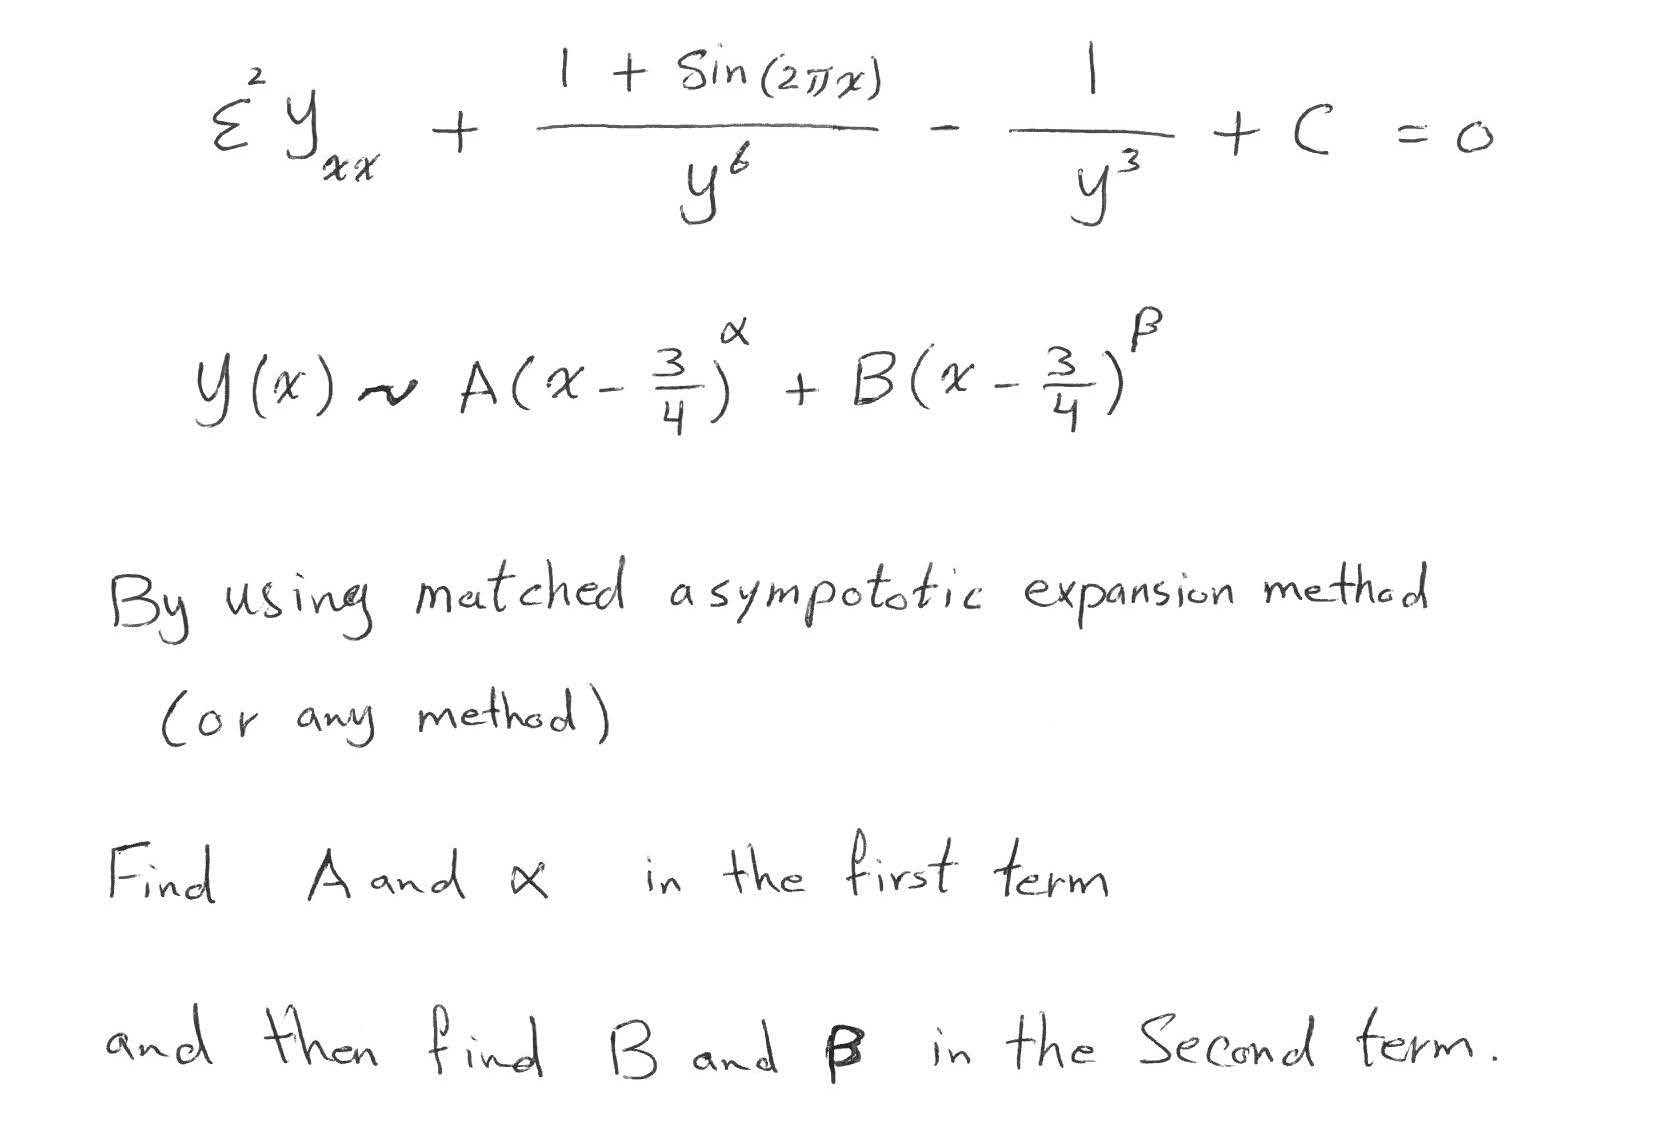 ε² y_xx + (1 + Sin(2πx))/y⁶ - 1/y³ + C = 0
y(x) ~ A(x - 3/4)^α + B(x - 3/4)^β
By using matched asympototic expansion method
(or any method)
Find A and α in the first term
and then find B and β in the Second term.